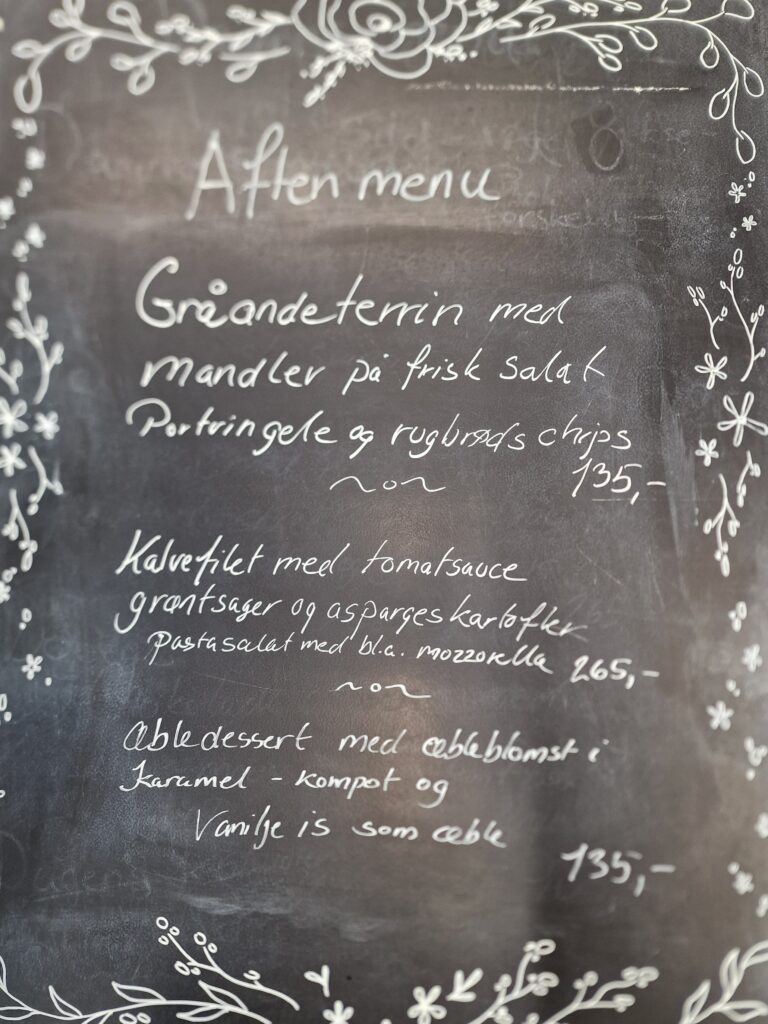 Aften menu
Gråandeterrin med
mandler på frisk salat
Portvingele og rugbrøds chips
135,-
Kalvefilet med tomatsauce
grøntsager og aspargeskartofler
Pastasalat med bl.a. mozzorella 265,-
Æbledessert med æbleblomst i
Karamel - kompot og
Vanilje is som æble
135,-